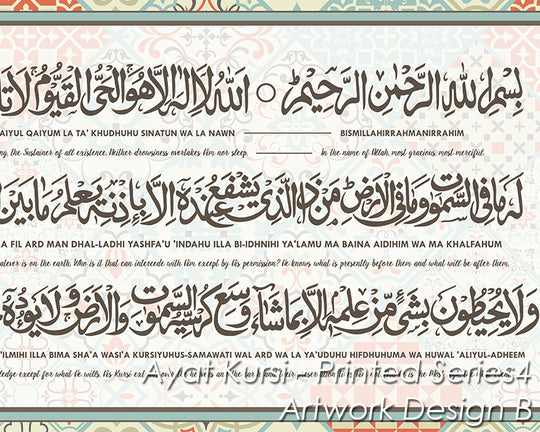 بِسْمِ اللهِ الرَّحْمٰنِ الرَّحِيْمِ ○ اَللهُ لَا اِلٰهَ اِلَّا هُوَ الْحَيُّ الْقَيُّوْمُ لَا تَا
AIYUL QAIYUM LA TA' KHUDHUHU SINATUN WA LA NAWN BISMILLAHIRRAHMANIRRAHIM
ing, the Sustainer of all existence. Neither drowsiness overtakes Him nor sleep. In the name of Allah, most gracious, most merciful.
لَهُ مَا فِي السَّمٰوٰتِ وَمَا فِي الْاَرْضِ مَنْ ذَا الَّذِيْ يَشْفَعُ عِنْدَهٗ اِلَّا بِاِذْنِهٖ يَعْلَمُ مَا بَيْنَ
A FIL ARD MAN DHAL-LADHI YASHFA'U 'INDAHU ILLA BI-IDHNIHI YA'LAMU MA BAINA AIDIHIM WA MA KHALFAHUM
hatever is on the earth. Who is it that can intercede with Him except by His permission? He knows what is presently before them and what will be after them,
وَلَا يُحِيْطُوْنَ بِشَيْءٍ مِّنْ عِلْمِهٖ اِلَّا بِمَا شَاءَ وَسِعَ كُرْسِيُّهُ السَّمٰوٰتِ وَالْاَرْضَ وَلَا يَـُٔوْدُهٗ
'ILMIHI ILLA BIMA SHA'A WASI'A KURSIYUHUS-SAMAWATI WAL ARD WA LA YA'UDUHU HIFDHUHUMA WA HUWAL 'ALIYUL-ADHEEM
ledge except for what He wills. His Kursi
Ayat Kursi - Printed Series4
Artwork Design B